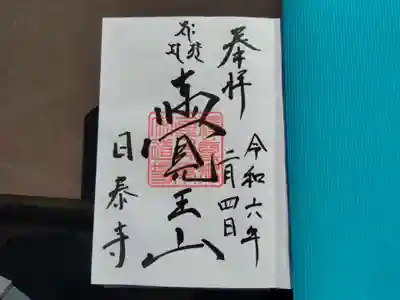 奉拝
令和六年
二月四日
覺王山
日泰寺